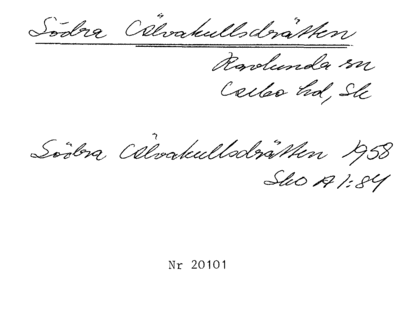 Södra Cälvakullsdrätten
Ravlunda sn
Albo hd, Sk
Södra Cälvakullsdrätten 1958
Sko A 1:84
Nr 20101